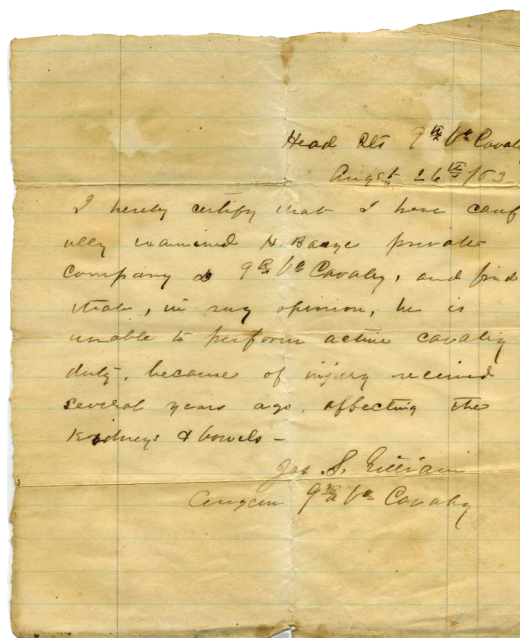 Head Qts 9th Va Cavalry
August 26th /63
I hereby certify that I have caref
ully examined H. Barye private
company 9th Va Cavalry, and find
that, in my opinion, he is
unable to perform active cavalry
duty, because of injury received
several years ago, affecting the
Kidneys & bowels -
Jas S. Gilliam
Surgeon 9th Va Cavalry